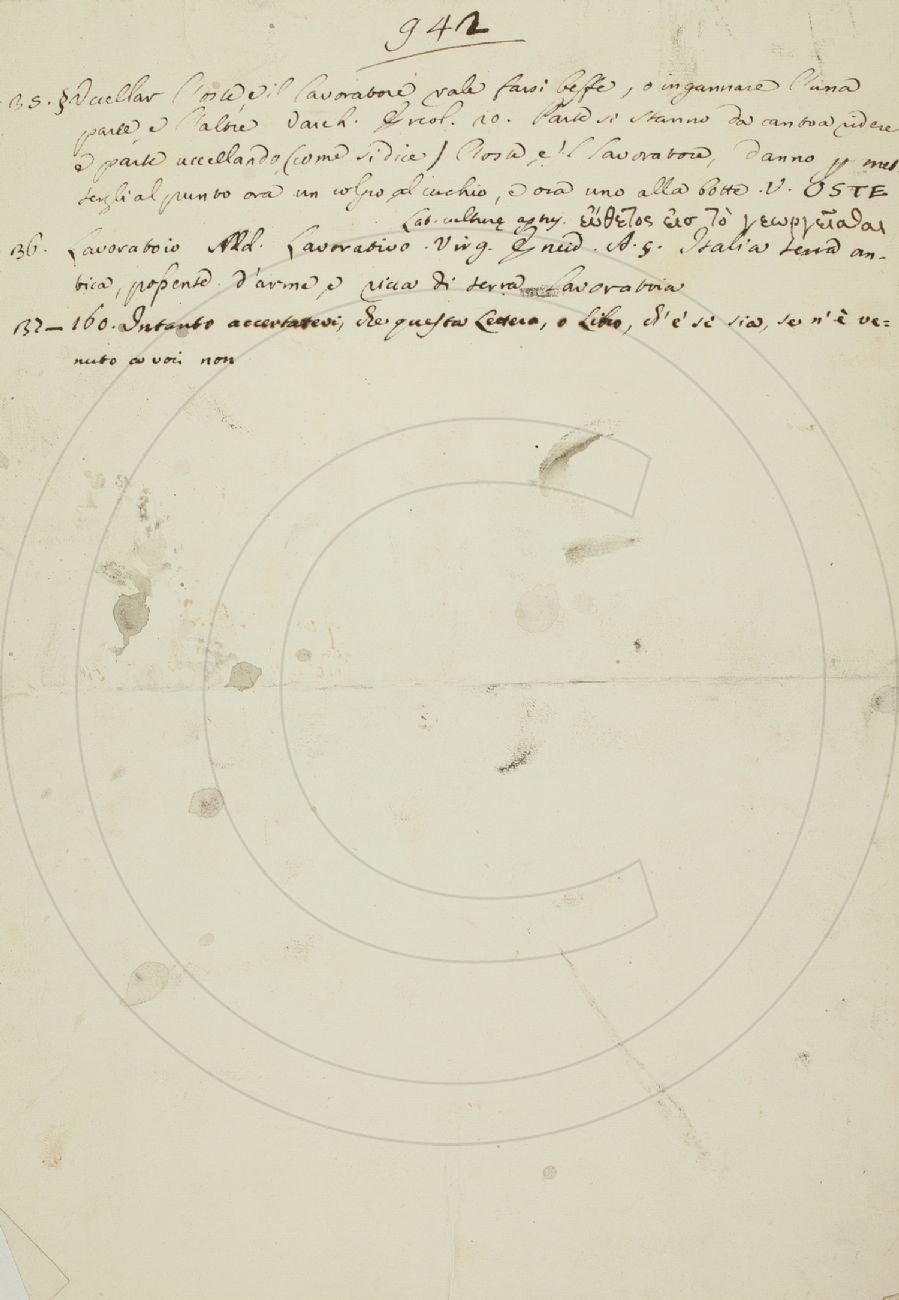 942
35. § Uccellar l'oste, e il lavoratore vale farsi beffe, o ingannare l'una
parte, e l'altra Varch. Ercol. 20. Parte si stanno da canto a ridere
e parte uccellando (come si dice) l'oste, e 'l lavoratore, danno per met
tergli al punto ora un colpo al cuchio, e ora uno alla botte. V. OSTE
Lat. culturę aptus. εὔθετος εἰσ τὸ γεωργεῖσθαι
36. Lavoratoio Add. Lavorativo. Virg. Eneid. A. 5. Italia terra an-
tica, possente d'arme, e ricca di terra Lavoratoia
132 – 160. Intanto accertatevi, che questa Lettera, o Libro, ch'è si sia, se n'è ve=
nuto a voi non